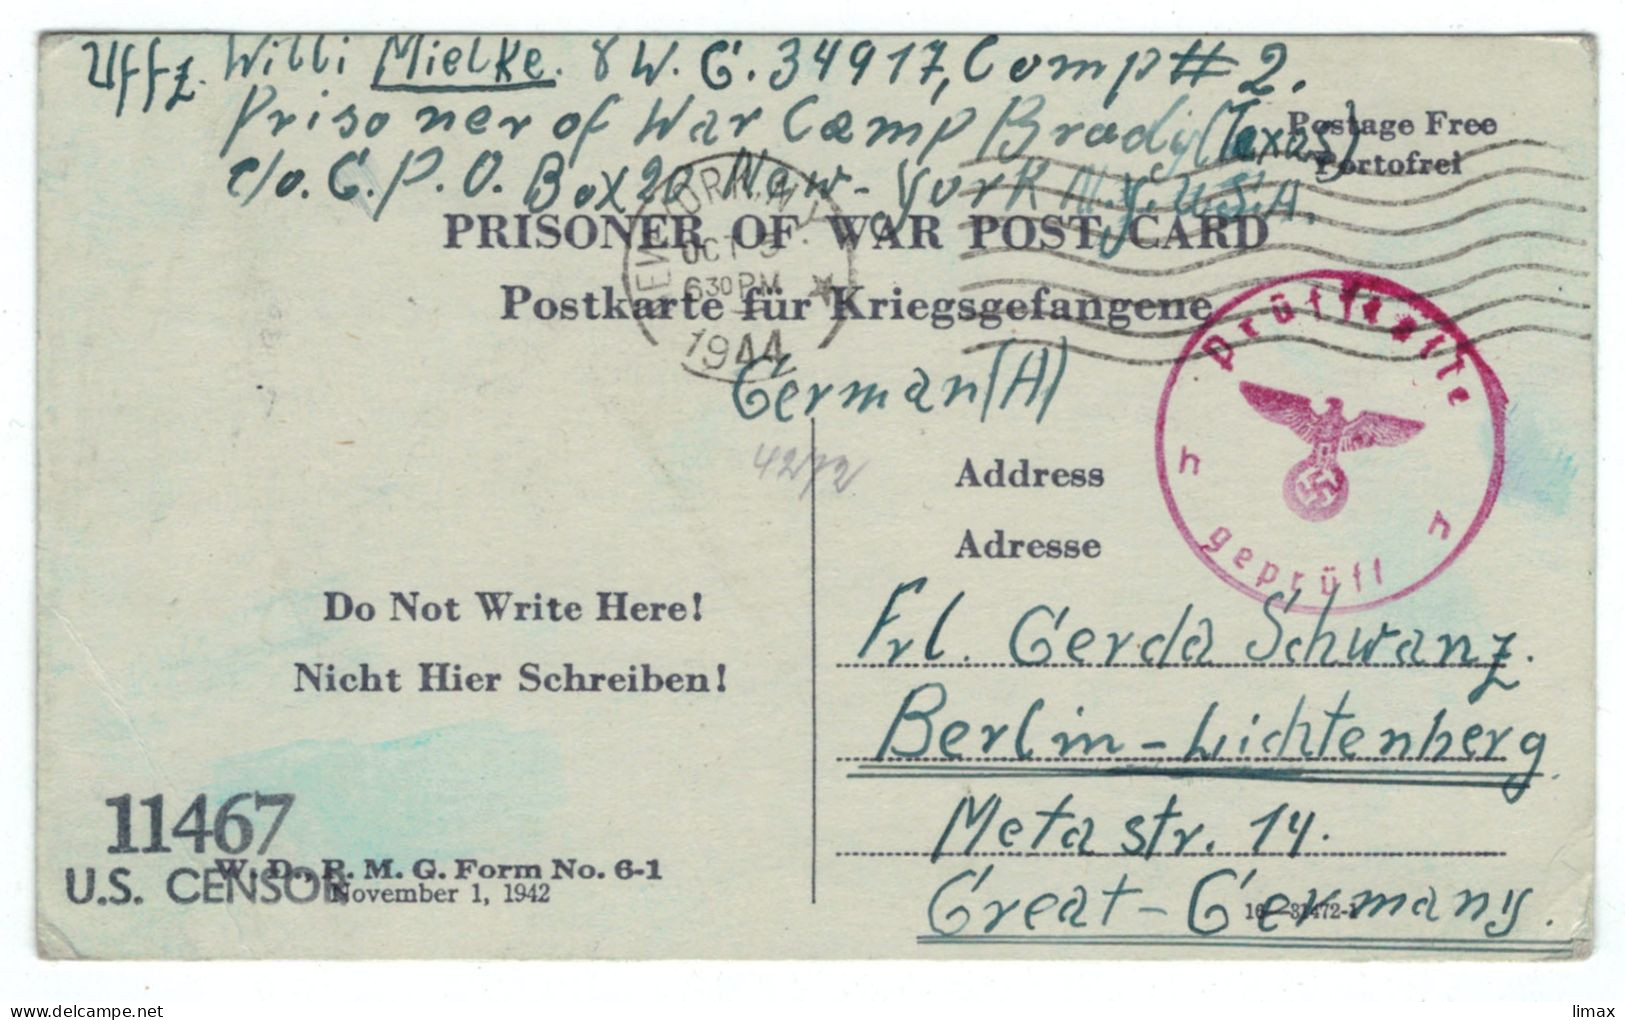 Uffz. Willi Mielke. 8 W. G. 34917, Comp # 2.
Prisoner of War Camp Brady (Texas)
c/o. G. P. O. Box 20 New-York N.Y. U.S.A.
Postage Free
Portofrei
PRISONER OF WAR POST CARD
Postkarte für Kriegsgefangene
NEW YORK, N.Y.
OCT 9
630 PM
1944
German (A)
4272
Prüfstelle
h h
geprüft
Address
Adresse
Do Not Write Here!
Nicht Hier Schreiben!
Frl. Gerda Schwanz.
Berlin-Lichtenberg
Meta str. 14.
Great-Germany.
11467
U.S. CENSOR
W. D., P. M. G. Form No. 6-1
November 1, 1942
16-31472-1
limax